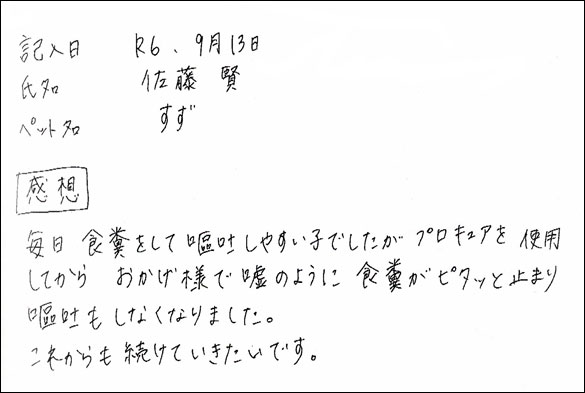 記入日 R6、9月13日
氏名 佐藤 賢
ペット名 すず
感想
毎日 食糞をして嘔吐しやすい子でしたが プロキュアを 使用
してから おかげ様で嘘のように 食糞がピタッと止まり
嘔吐も しなくなりました。
これからも 続けていきたいです。